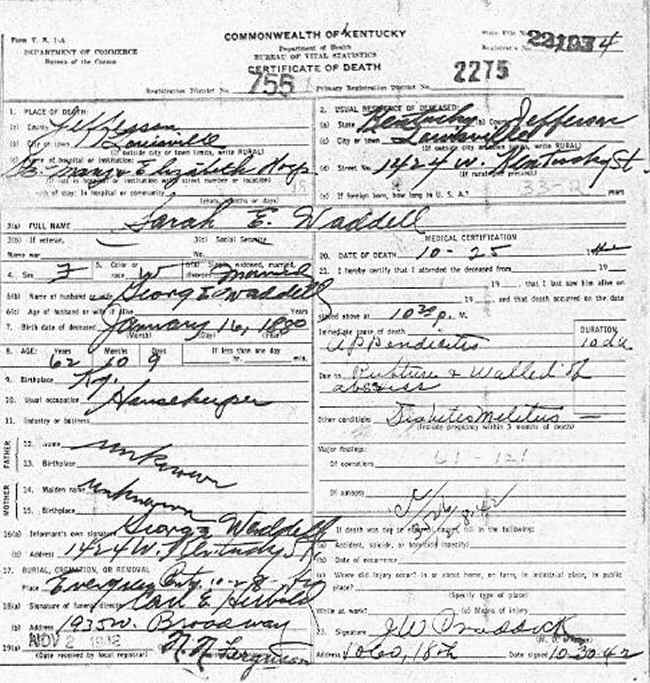 COMMONWEALTH OF KENTUCKY
Form V. S. 1-A
DEPARTMENT OF COMMERCE
Bureau of the Census
Department of Health
BUREAU OF VITAL STATISTICS
CERTIFICATE OF DEATH
State File No.
Registrar's No.
Registration District No. 755
Primary Registration District No. 2275
1. PLACE OF DEATH:
(a) County Jefferson
(b) City or town Louisville
(If outside city or town limits, write RURAL)
(c) Name of hospital or institution:
St. Mary & Elizabeth Hosp.
(Years, months or days)
2. USUAL RESIDENCE OF DECEASED:
(a) State Kentucky (b) County Jefferson
(c) City or town Louisville
(If outside city or town limits, write RURAL)
(d) Street No. 1424 W. Kentucky St.
(If rural give precinct)
(e) If foreign born, how long in U. S. A.? years
3(a) FULL NAME Sarah E. Waddell
3(b) If veteran, Name war
3(c) Social Security No.
4. Sex F
5. Color or race W
6(a) Single, widowed, married, divorced Married
6(b) Name of husband or wife George E Waddell
6(c) Age of husband or wife if alive Years
7. Birth date of deceased January 16, 1880
(Month) (Day) (Year)
8. AGE: Years Months Days If less than one day
62 10 9 hr. min.
9. Birthplace Ky.
10. Usual occupation Housekeeper
11. Industry or business
FATHER
12. Name unknown
13. Birthplace
MOTHER
14. Maiden name unknown
15. Birthplace
16(a) Informant's own signature George Waddell
(b) Address 1424 W. Kentucky St
17. BURIAL, CREMATION, OR REMOVAL
Place Evergreen Cmty. 10-28-42
18(a) Signature of funeral director Carl E. Herbold
(b) Address 1935 W. Broadway
19(a) NOV 2 1942 N. N. Ferguson
(Date received by local registrar)
MEDICAL CERTIFICATION
20. DATE OF DEATH 10-25 1942
21. I hereby certify that I attended the deceased from 19
19 , that I last saw him alive on
19 and that death occurred on the date
stated above at 10 30 P. M.
Immediate cause of death DURATION
Appendicitis 10 da
Due to Rupture & Walled off
abscess
Other conditions Diabetes Melitus
(Include pregnancy within 3 months of death)
Major findings:
Of operations
Of autopsy
22. If death was due to external causes, fill in the following:
(a) Accident, suicide, or homicide (specify)
(b) Date of occurrence
(c) Where did injury occur? in or about home, on farm, in industrial place, in public
place?
(Specify type of place)
While at work? (e) Means of injury
23. Signature J W Craddick
Address 1060, 18th Date signed 10-30-42